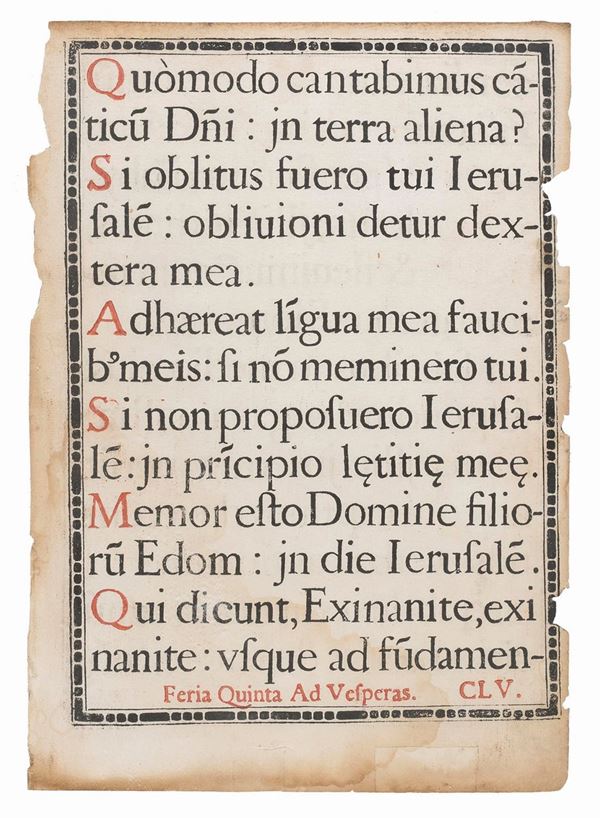 Quòmodo cantabimus cã-
ticũ Dñi : jn terra aliena?
Si oblitus fuero tui Ieru-
ſalẽ : obliuioni detur dex-
tera mea.
Adhæreat lĩgua mea fauci-
bꝰmeis: ſi nõ meminero tui.
Si non propoſuero Ieruſa-
lẽ: jn prĩcipio lętitię meę.
Memor eſto Domine filio-
rũ Edom : jn die Ieruſalẽ.
Qui dicunt, Exinanite, exi
nanite : vſque ad fũdamen-
Feria Quinta Ad Veſperas. CLV.